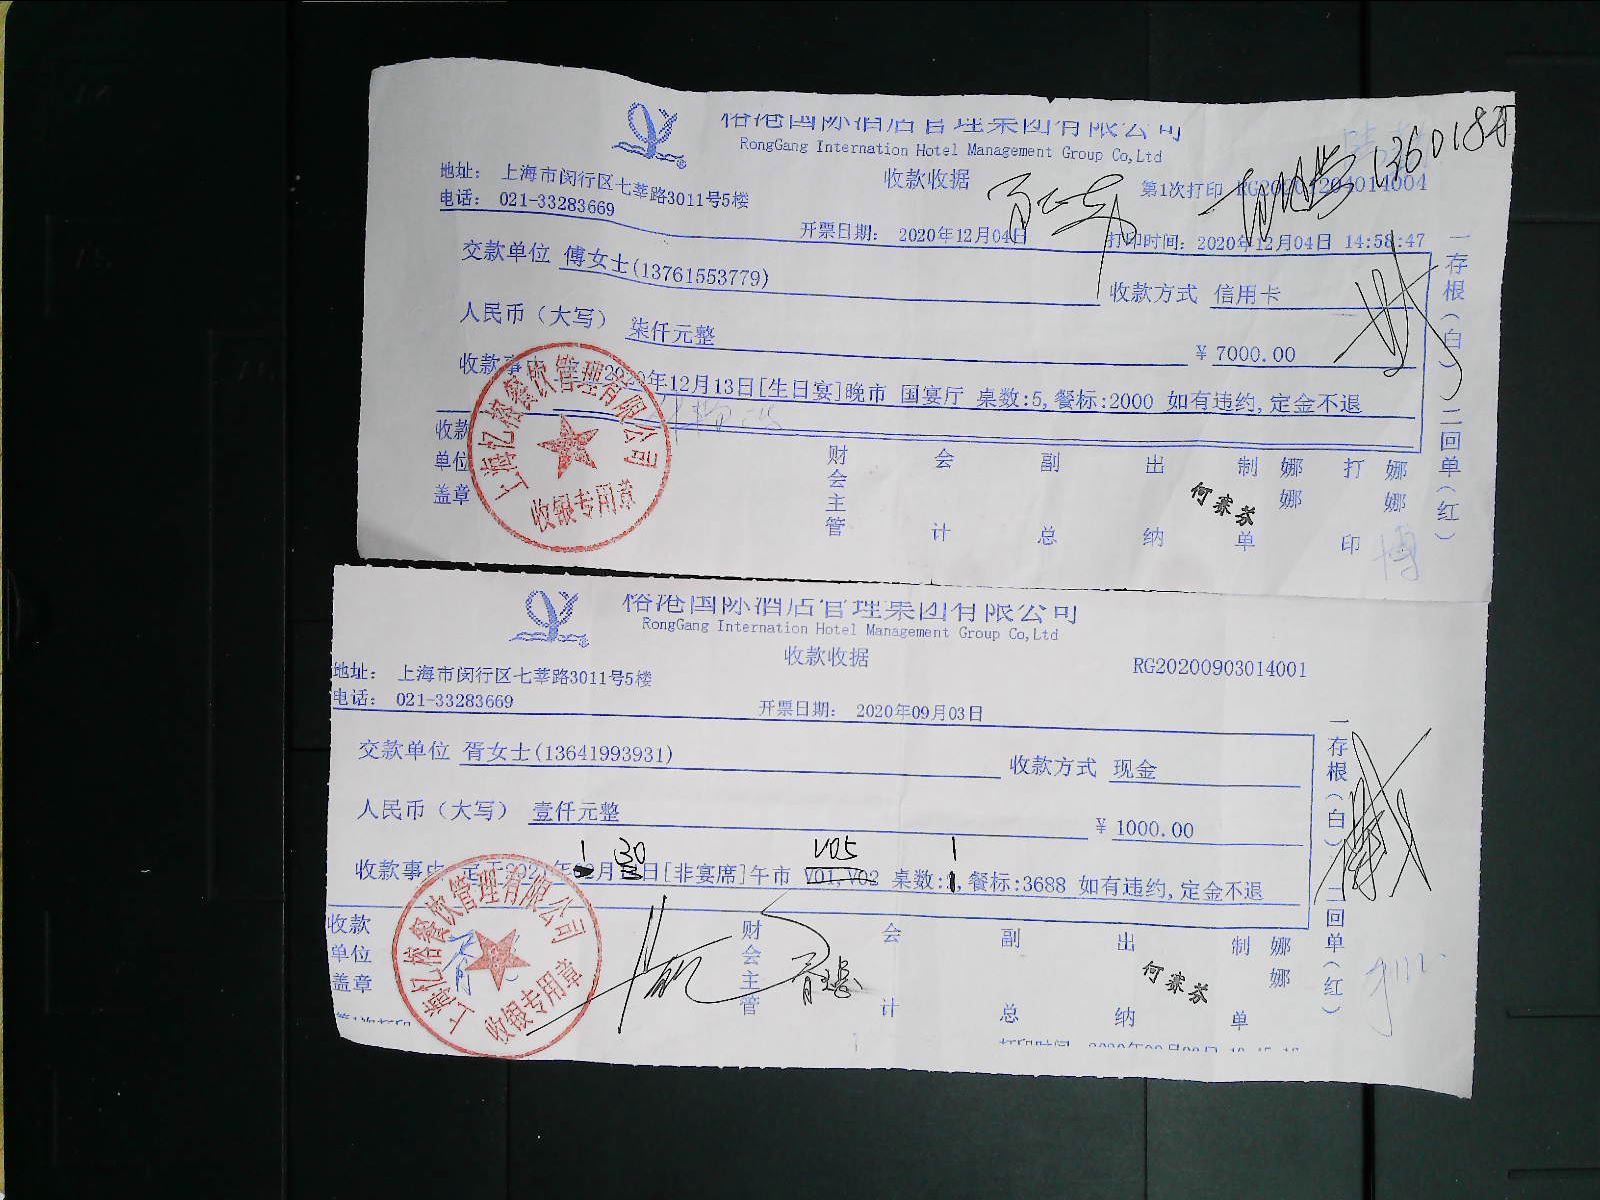 榕港国际酒店管理集团有限公司
RongGang Internation Hotel Management Group Co,Ltd
收款收据
地址： 上海市闵行区七莘路3011号5楼
第1次打印 RG20201204014004
电话： 021-33283669
开票日期： 2020年12月04日
打印时间：2020年12月04日 14:58:47
交款单位 傅女士(13761553779)
收款方式 信用卡
人民币（大写） 柒仟元整
￥ 7000.00
收款事由 2020年12月13日[生日宴]晚市 国宴厅 桌数:5,餐标:2000 如有违约,定金不退
收款单位盖章
财会主管
会计
副总
出纳
何赛芬
制单
娜娜
打印
娜娜
一存根（白）二回单（红）
上海忆榕餐饮管理有限公司
收银专用章
榕港国际酒店管理集团有限公司
RongGang Internation Hotel Management Group Co,Ltd
收款收据
RG20200903014001
地址： 上海市闵行区七莘路3011号5楼
电话： 021-33283669
开票日期： 2020年09月03日
交款单位 胥女士(13641993931)
收款方式 现金
人民币（大写） 壹仟元整
￥ 1000.00
1 30 V05 1
收款事由 定于2021年 月 日[非宴席]午市 V01,V02 桌数: ,餐标:3688 如有违约,定金不退
收款单位盖章
财会主管
会计
副总
出纳
何赛芬
制单
娜娜
一存根（白）二回单（红）
上海忆榕餐饮管理有限公司
收银专用章